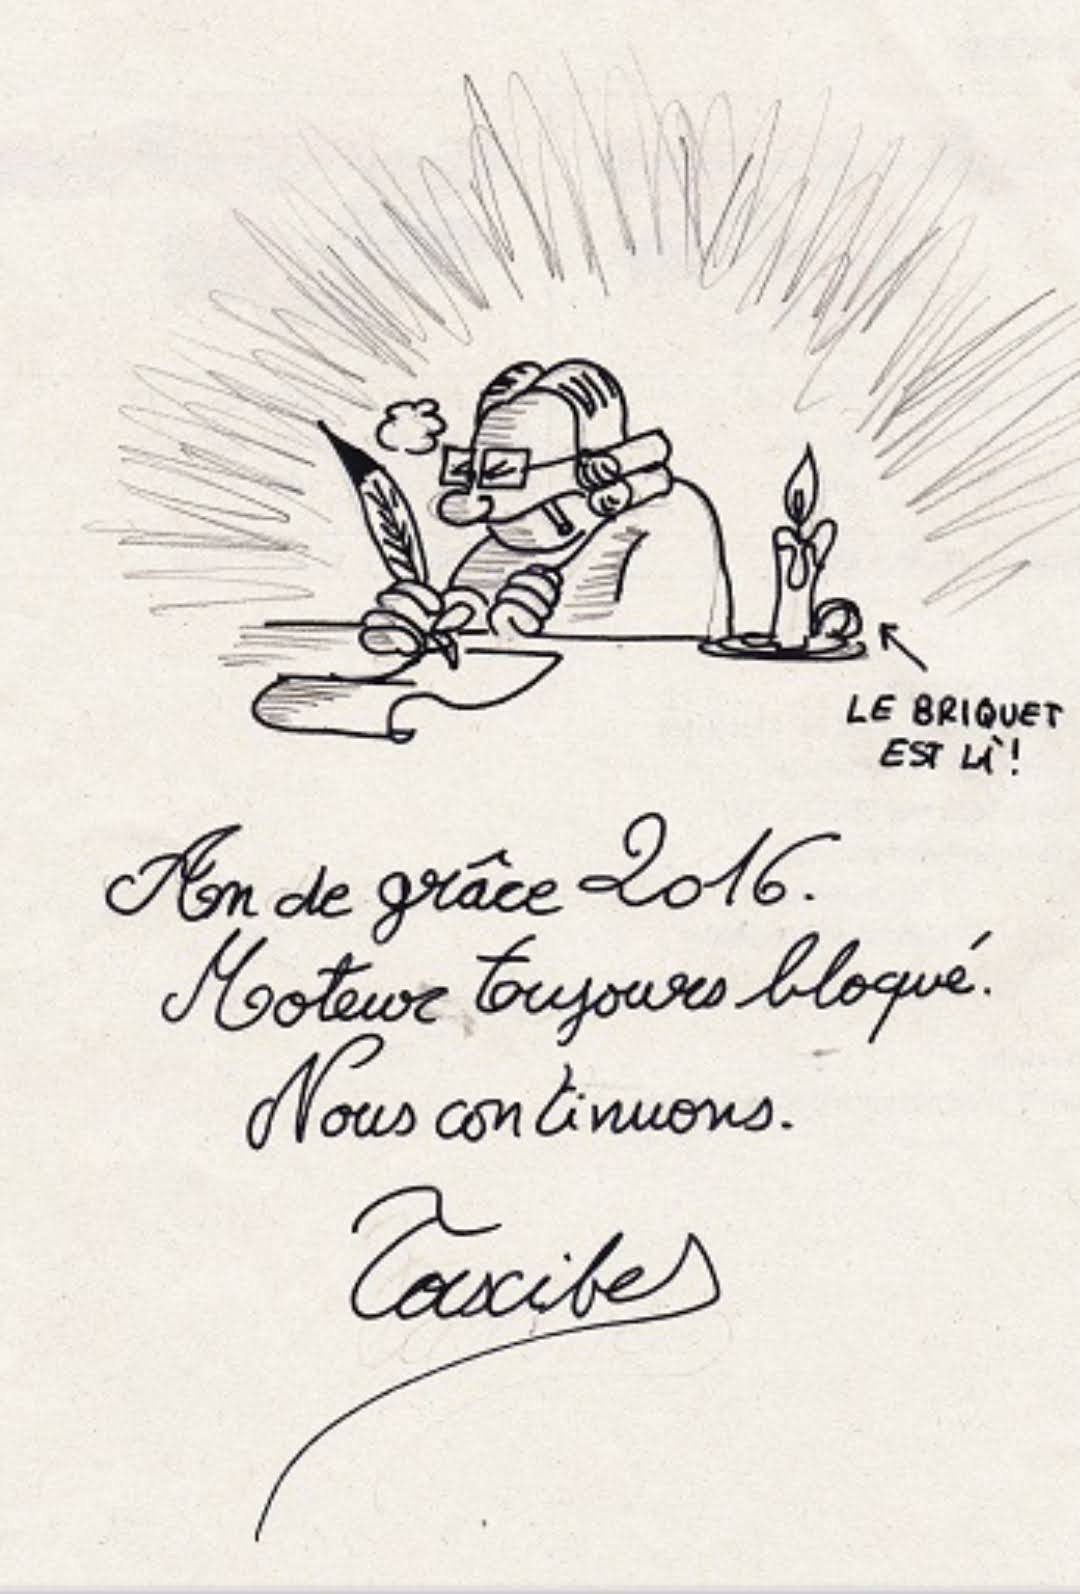 LE BRIQUET
EST LÀ!
An de grâce 2016.
Moteur toujours bloqué.
Nous continuons.
Toxcibes